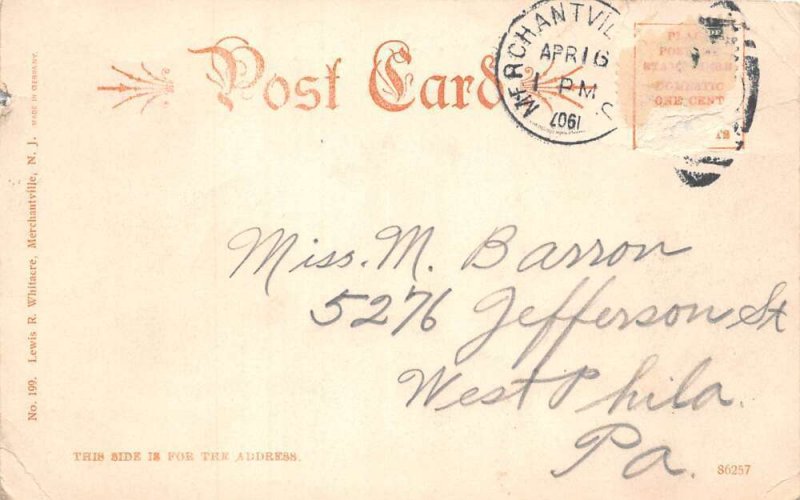 Post Card
MERCHANTVIL
APR 16
1 PM
1907
J.
DOMESTIC
ONE CENT
Miss. M. Barron
5276 Jefferson St
West Phila.
Pa.
THIS SIDE IS FOR THE ADDRESS.
86257
No. 199. Lewis R. Whitacre, Merchantville, N. J. MADE IN GERMANY.